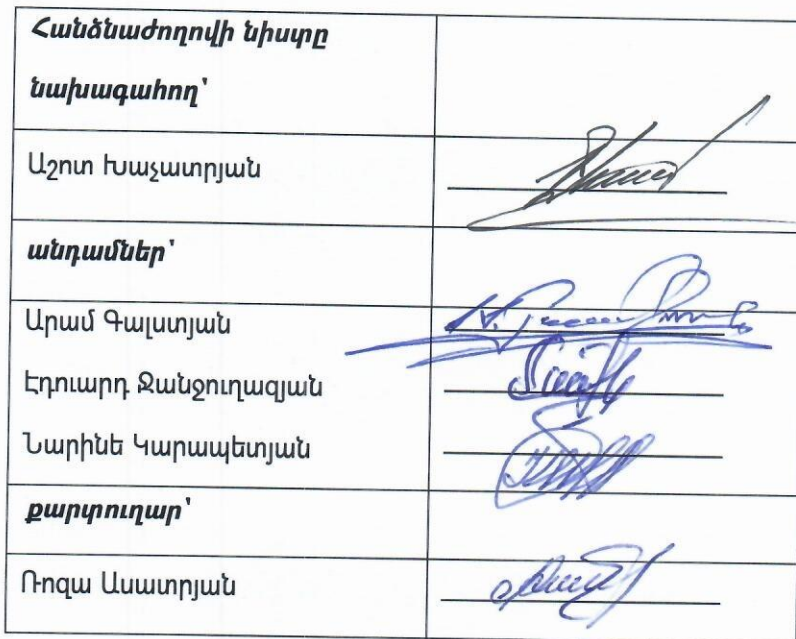 Հանձնաժողովի նիստը
նախագահող՝
Աշոտ Խաչատրյան
անդամներ՝
Արամ Գալստյան
Էդուարդ Ջանջուղազյան
Նարինե Կարապետյան
քարտուղար՝
Ռոզա Ասատրյան